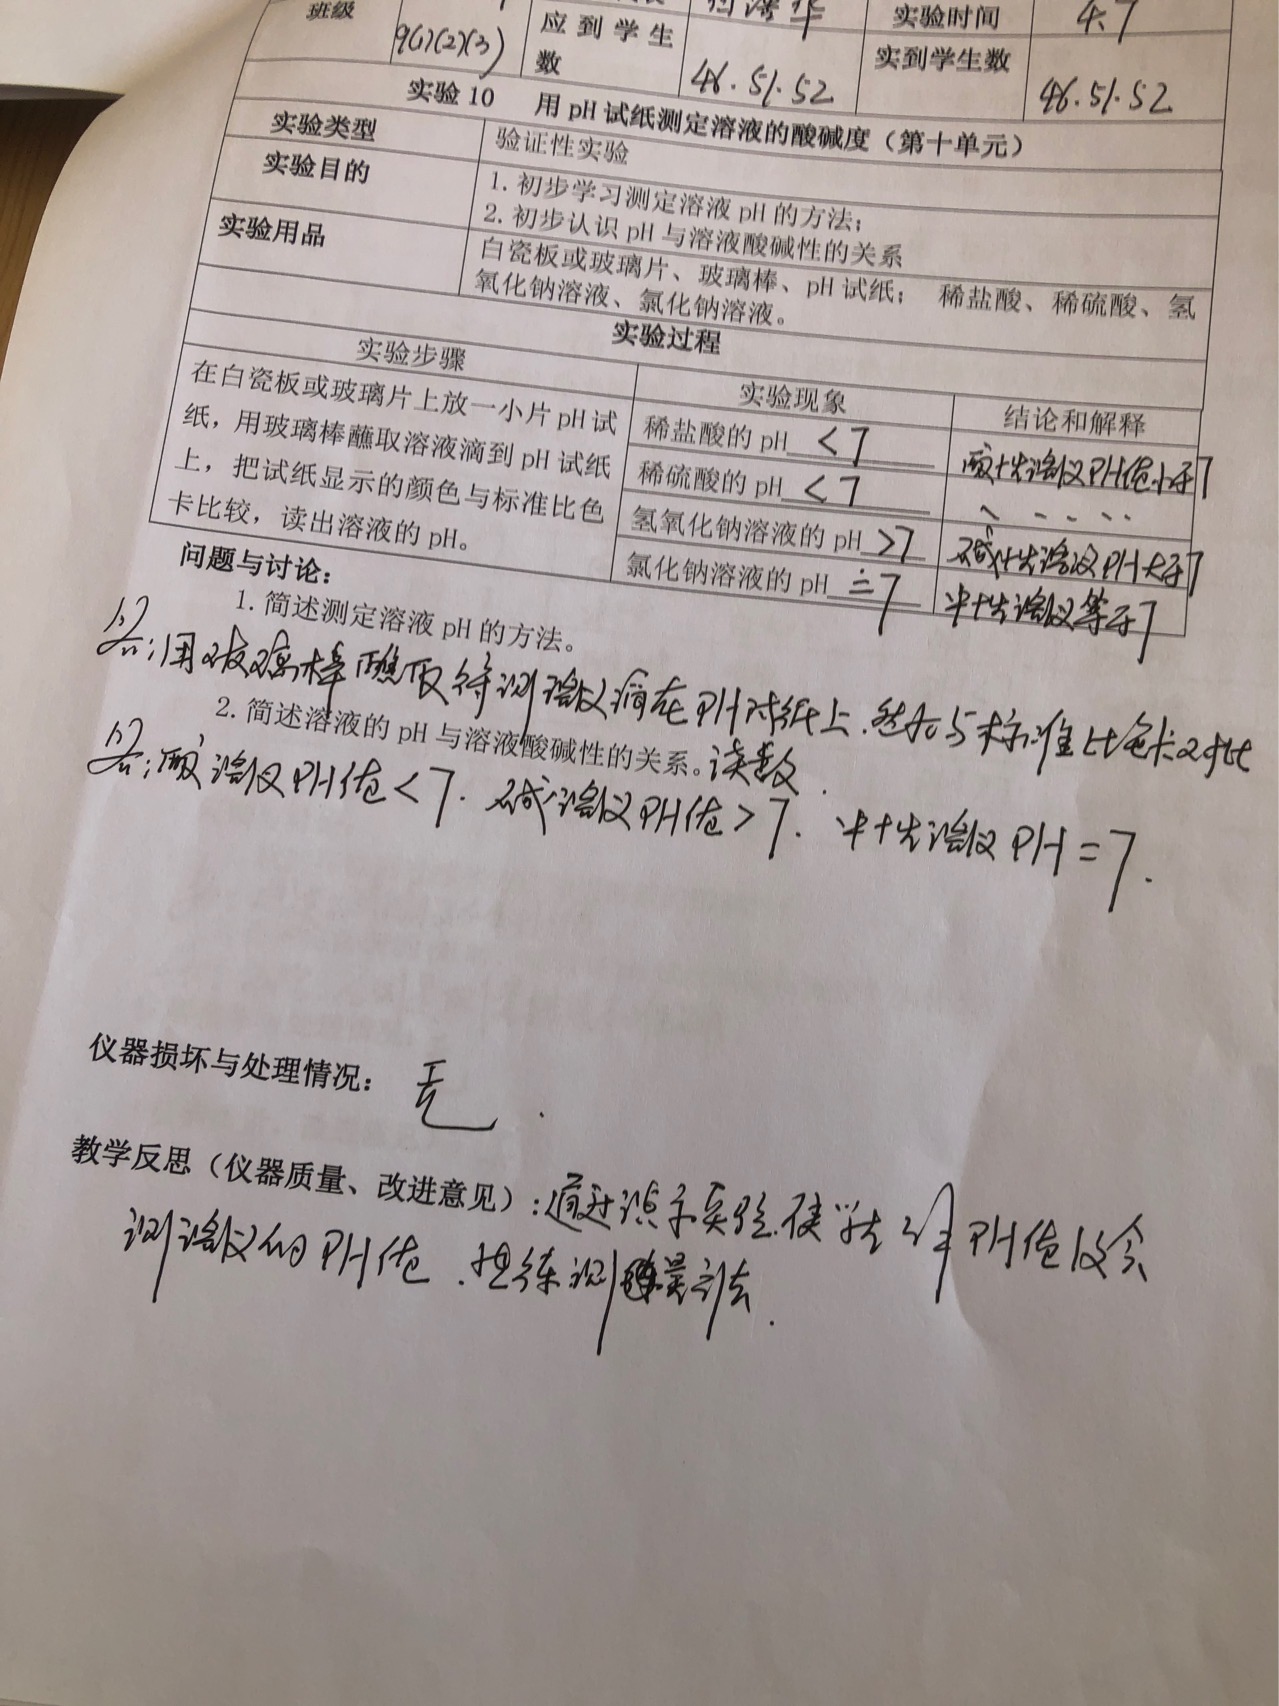 班级
9(1)(2)(3)
应到学生数
46.51.52
实验时间
4.7
实到学生数
46.51.52
实验10 用pH试纸测定溶液的酸碱度（第十单元）
实验类型
验证性实验
实验目的
1.初步学习测定溶液pH的方法；
2.初步认识pH与溶液酸碱性的关系
实验用品
白瓷板或玻璃片、玻璃棒、pH试纸； 稀盐酸、稀硫酸、氢
氧化钠溶液、氯化钠溶液。
实验过程
实验步骤
实验现象
结论和解释
在白瓷板或玻璃片上放一小片pH试
纸，用玻璃棒蘸取溶液滴到pH试纸
上，把试纸显示的颜色与标准比色
卡比较，读出溶液的pH。
稀盐酸的pH <7
酸性溶液PH值小于7
稀硫酸的pH <7
氢氧化钠溶液的pH >7
碱性溶液PH大于7
氯化钠溶液的pH =7
中性溶液等于7
问题与讨论：
1.简述测定溶液pH的方法。
答:用玻璃棒蘸取待测溶液滴在PH试纸上.然后与标准比色卡对比
读数.
2.简述溶液的pH与溶液酸碱性的关系。
答:酸溶液PH值<7. 碱溶液PH值>7. 中性溶液PH=7.
仪器损坏与处理情况： 无.
教学反思（仪器质量、改进意见）:通过演示实验.使学生 PH值及会
测溶液的PH值.